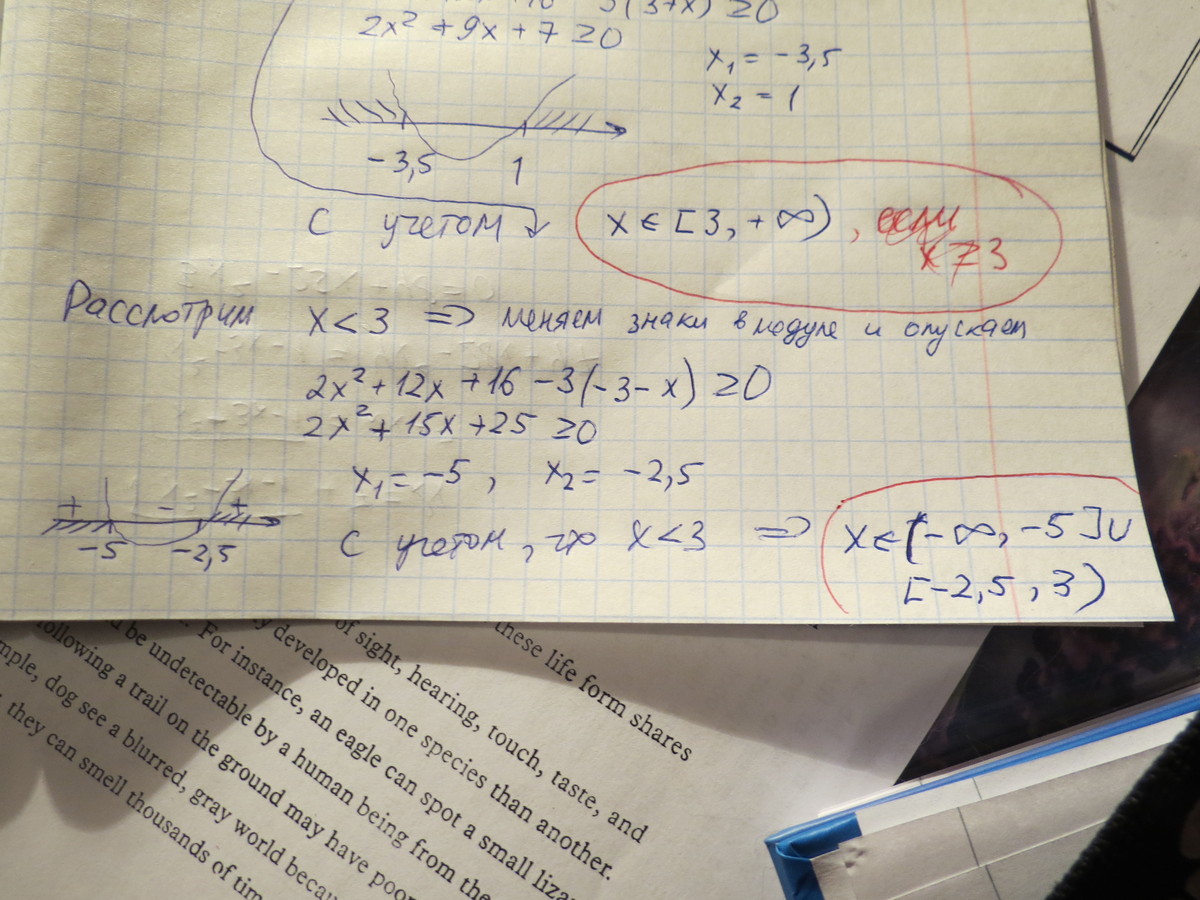 3(3+x) ≥0
2x² +9x + 7 ≥0
x₁ = -3,5
x₂ = 1
-3,5 1
С учетом x ∈ [3, +∞), если
x ≥ 3
Рассмотрим x < 3 => меняем знаки в модуле и опускаем
2x² + 12x + 16 - 3(-3-x) ≥0
2x² + 15x + 25 ≥0
x₁ = -5, x₂ = -2,5
+ - +
-5 -2,5
С учетом, что x<3 => x ∈ (-∞, -5] ∪
[-2,5, 3)
these life form shares
of sight, hearing, touch, taste, and
developed in one species than another.
For instance, an eagle can spot a small
be undetectable by a human being from the
following a trail on the ground may have
dog see a blurred, gray world
they can smell thousands of